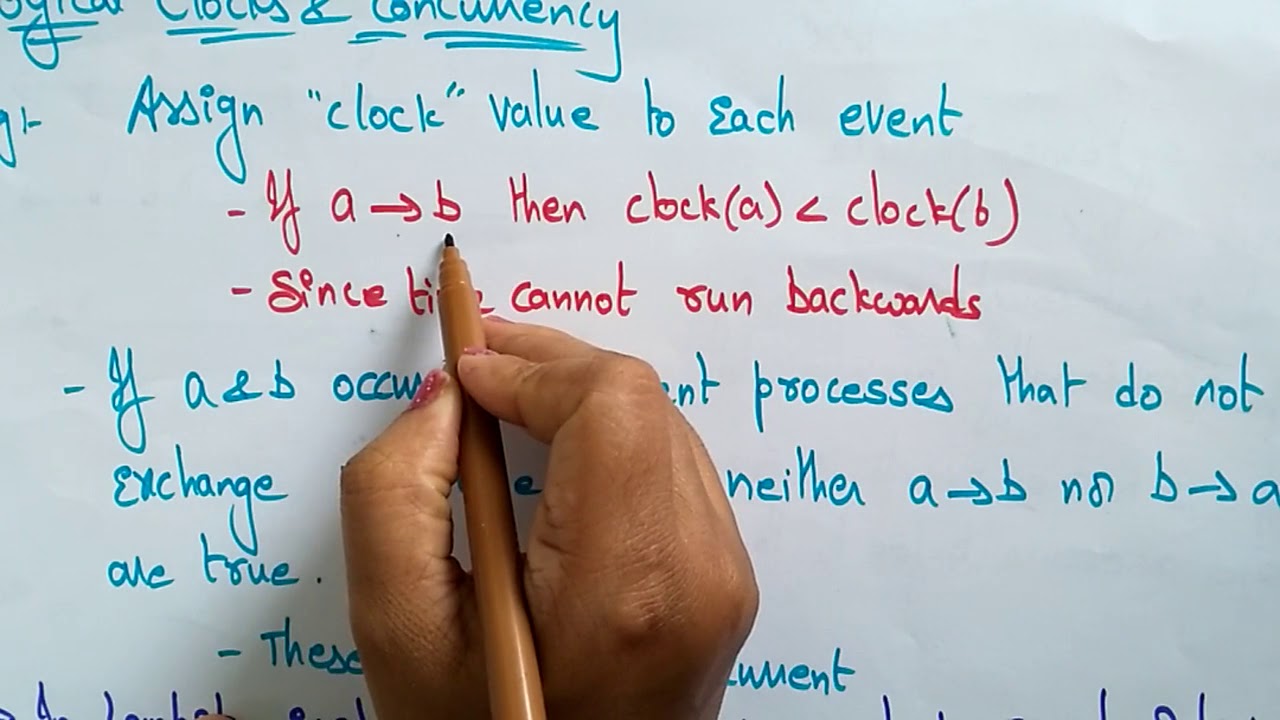 Clocks & Concurrency
Assign "clock" value to Each event
- If a → b then clock(a) < clock(b)
- Since time cannot run backwards
- If a & b processes that do not
Exchange neither a → b nor b → a
are true.
- These